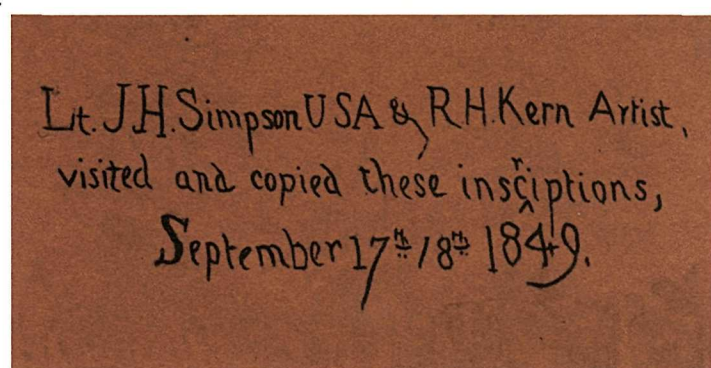 Lt. J.H. Simpson USA & R H. Kern Artist,
visited and copied these inscriptions,
September 17th 18th 1849.